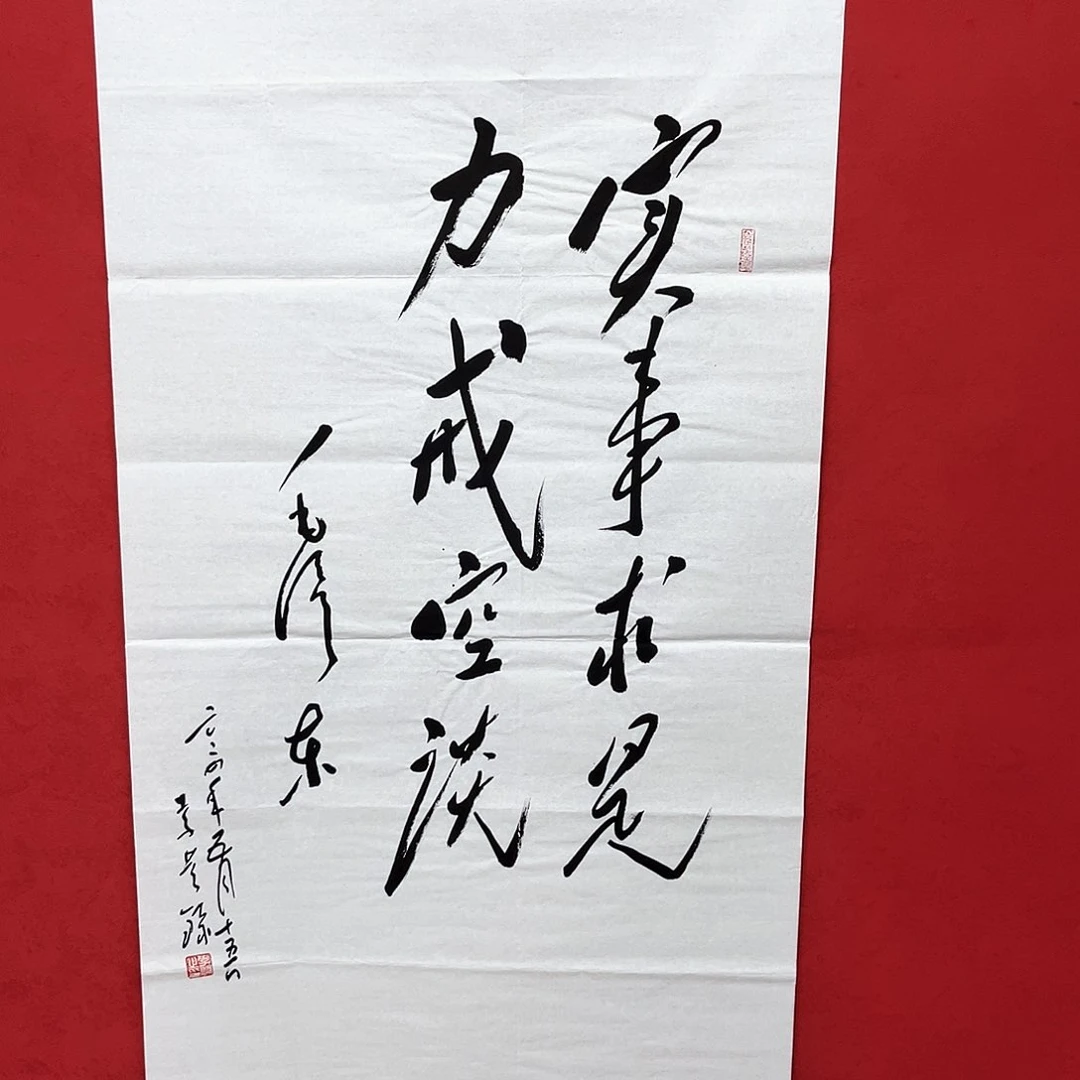 實事求是
力戒空谈
毛泽东
二〇二四年五月十五日
录